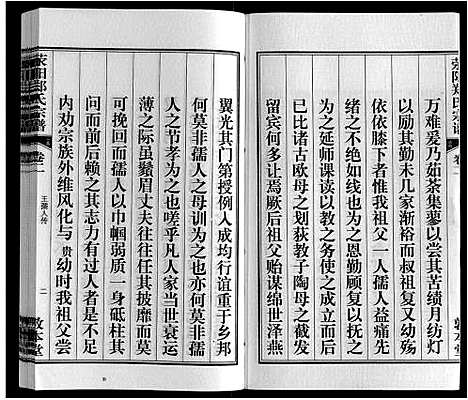 荥阳郑氏宗谱
卷一
万难爰乃茹荼集蓼以尝其苦绩月纺灯
以励其勤未几家渐裕而叔祖复又幼弱
依依膝下者惟我祖父一人孺人益痛先
绪之不绝如线也为之恩勤顾复以抚之
为之延师课读以教之务使之成立而后
已比诸古欧母之划荻教子陶母之截发
留宾何多让焉厥后祖父贻谋绵世泽燕
敦本堂
翼光其门第授例入成均行谊重于乡邦
何莫非孺人之母训为之也亦何莫非孺
人之节孝为之也嗟乎凡人家当世衰运
薄之际虽鬚眉丈夫往往任其披靡而莫
可挽孺人以巾帼弱质一身砥柱其
间而前后赖之其志力有过人者是不足
内劝宗族外维风化与贵幼时我祖父尝
荥阳郑氏宗谱
卷一
王孺人传
二
敦本堂